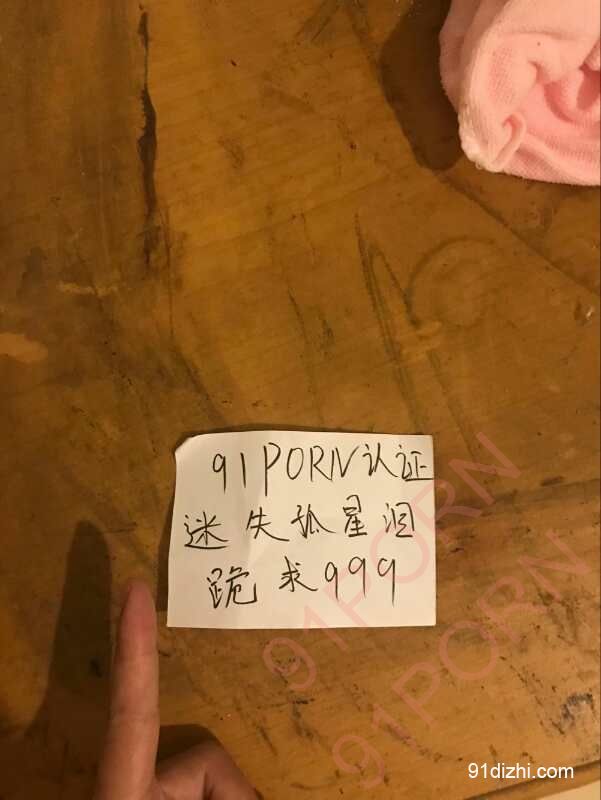 91PORN认证
迷失孤星泪
跪求999
91PORN
91PORN
91dizhi.com